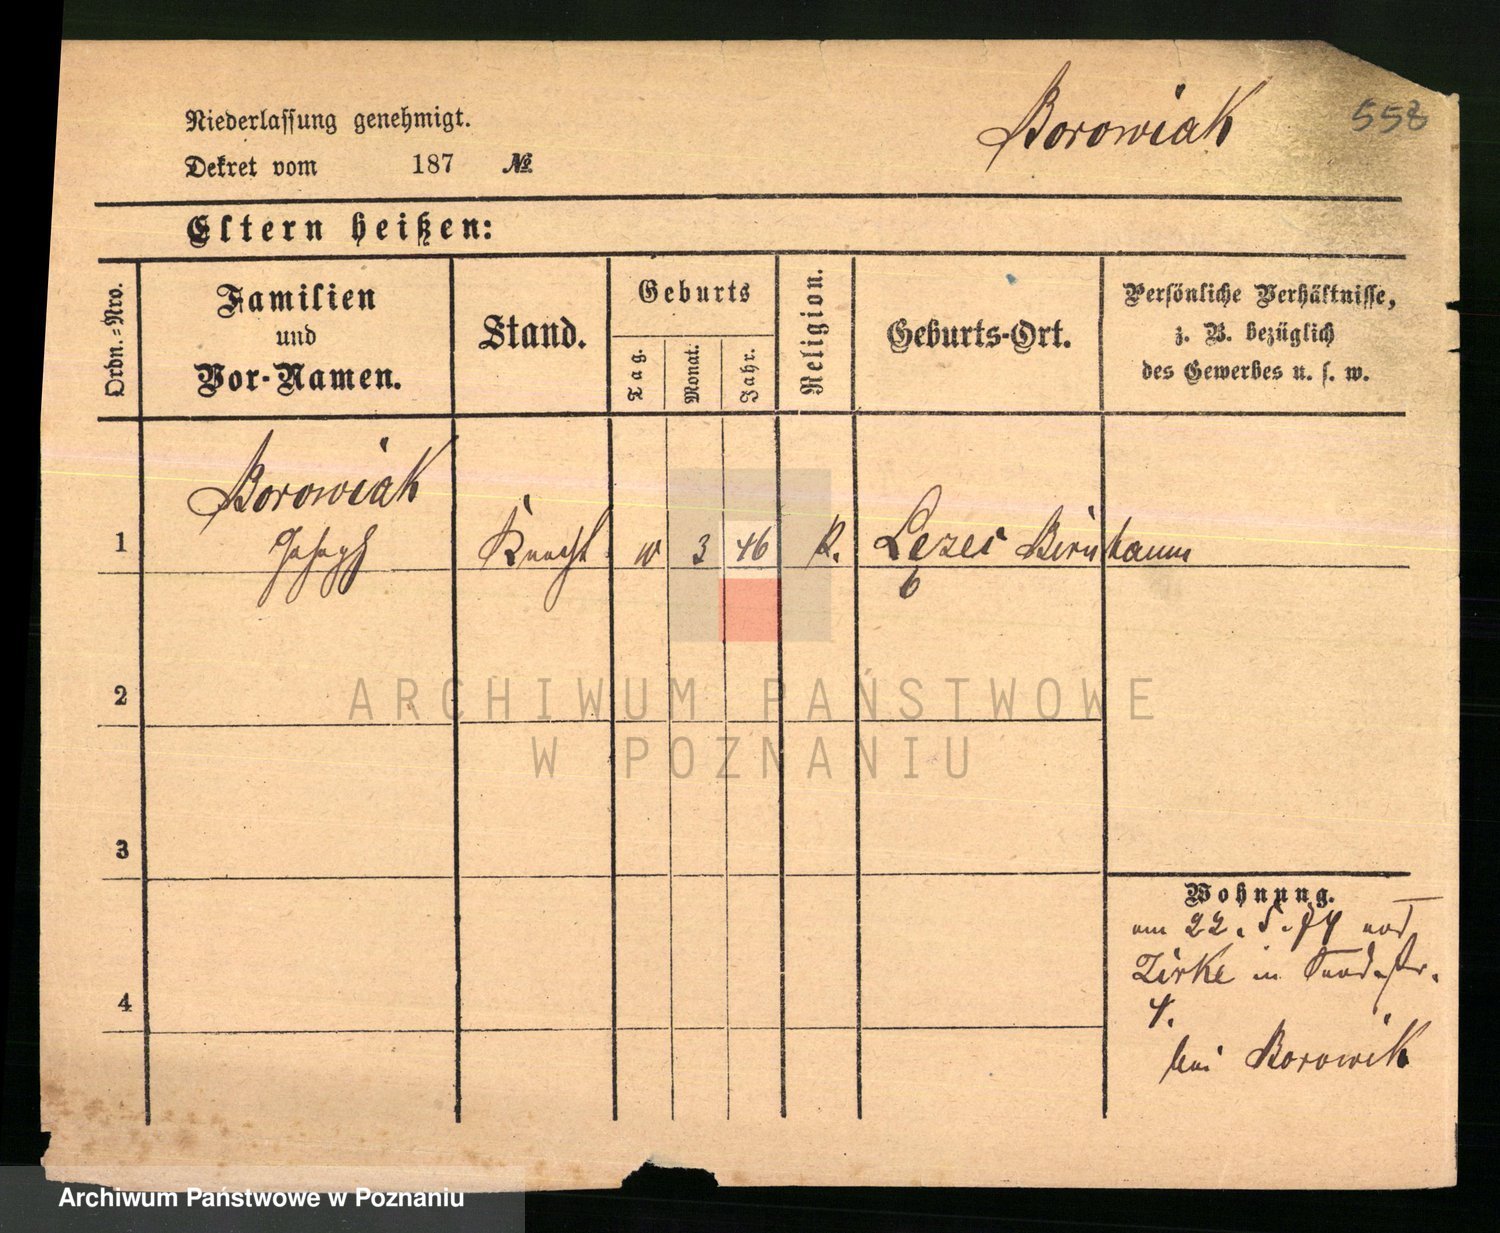 Borowiak
558
Niederlassung genehmigt.
Dekret vom 187 №
Eltern heißen:
Ordn.-Nro.
Familien
und
Vor-Namen.
Stand.
Geburts
Tag.
Monat.
Jahr.
Religion.
Geburts-Ort.
Persönliche Verhältnisse,
z. B. bezüglich
des Gewerbes u. s. w.
Borowiak
1 Joseph Knecht 3 46 K. Birnbaum
6
2
ARCHIWUM PAŃSTWOWE
W POZNANIU
3
Wohnung.
am 22. 5. 74
Zirke in
4
4.
bei Borowik
Archiwum Państwowe w Poznaniu